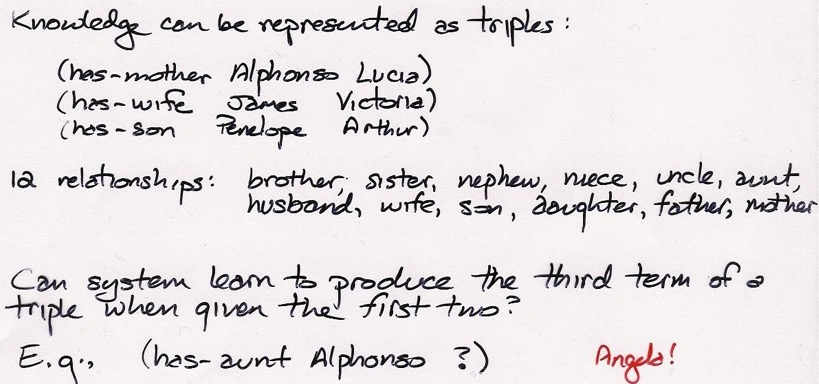 Knowledge can be represented as triples:
(has-mother Alphonso Lucia)
(has-wife James Victoria)
(has-son Penelope Arthur)
12 relationships: brother, sister, nephew, niece, uncle, aunt,
husband, wife, son, daughter, father, mother
Can system learn to produce the third term of a
triple when given the first two?
E.g., (has-aunt Alphonso ?) Angela!